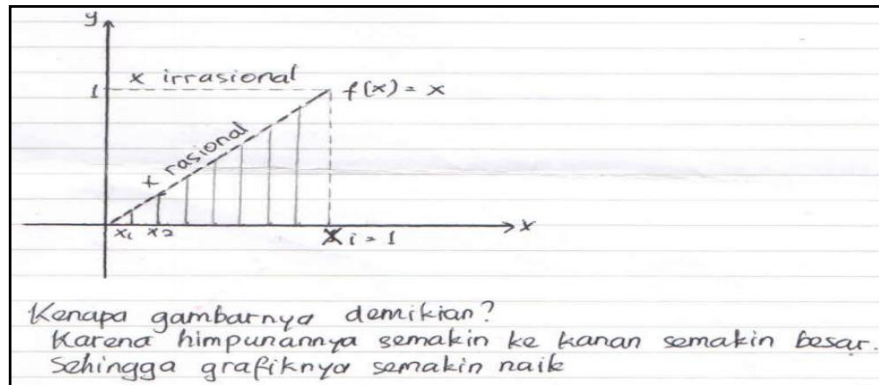 y
x irrasional
1
f(x) = x
x rasional
x
x1 x2 Xi = 1
Kenapa gambarnya demikian?
Karena himpunannya semakin ke kanan semakin besar.
Sehingga grafiknya semakin naik